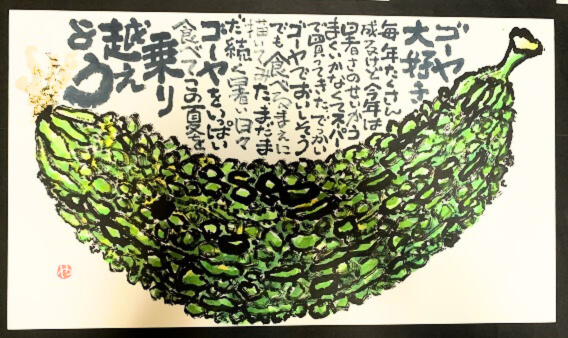 ゴーヤ
大好き
毎年たくさん
成るけど今年は
暑さのせいかう
まくいかなくてスーパー
で買ってきた。でっかい
ゴーヤでおいしそう
でも食べるまえに
描いてみた。まだま
だ続く暑い日々
ゴーヤをいっぱい
食べてこの夏を
乗り
越え
よう